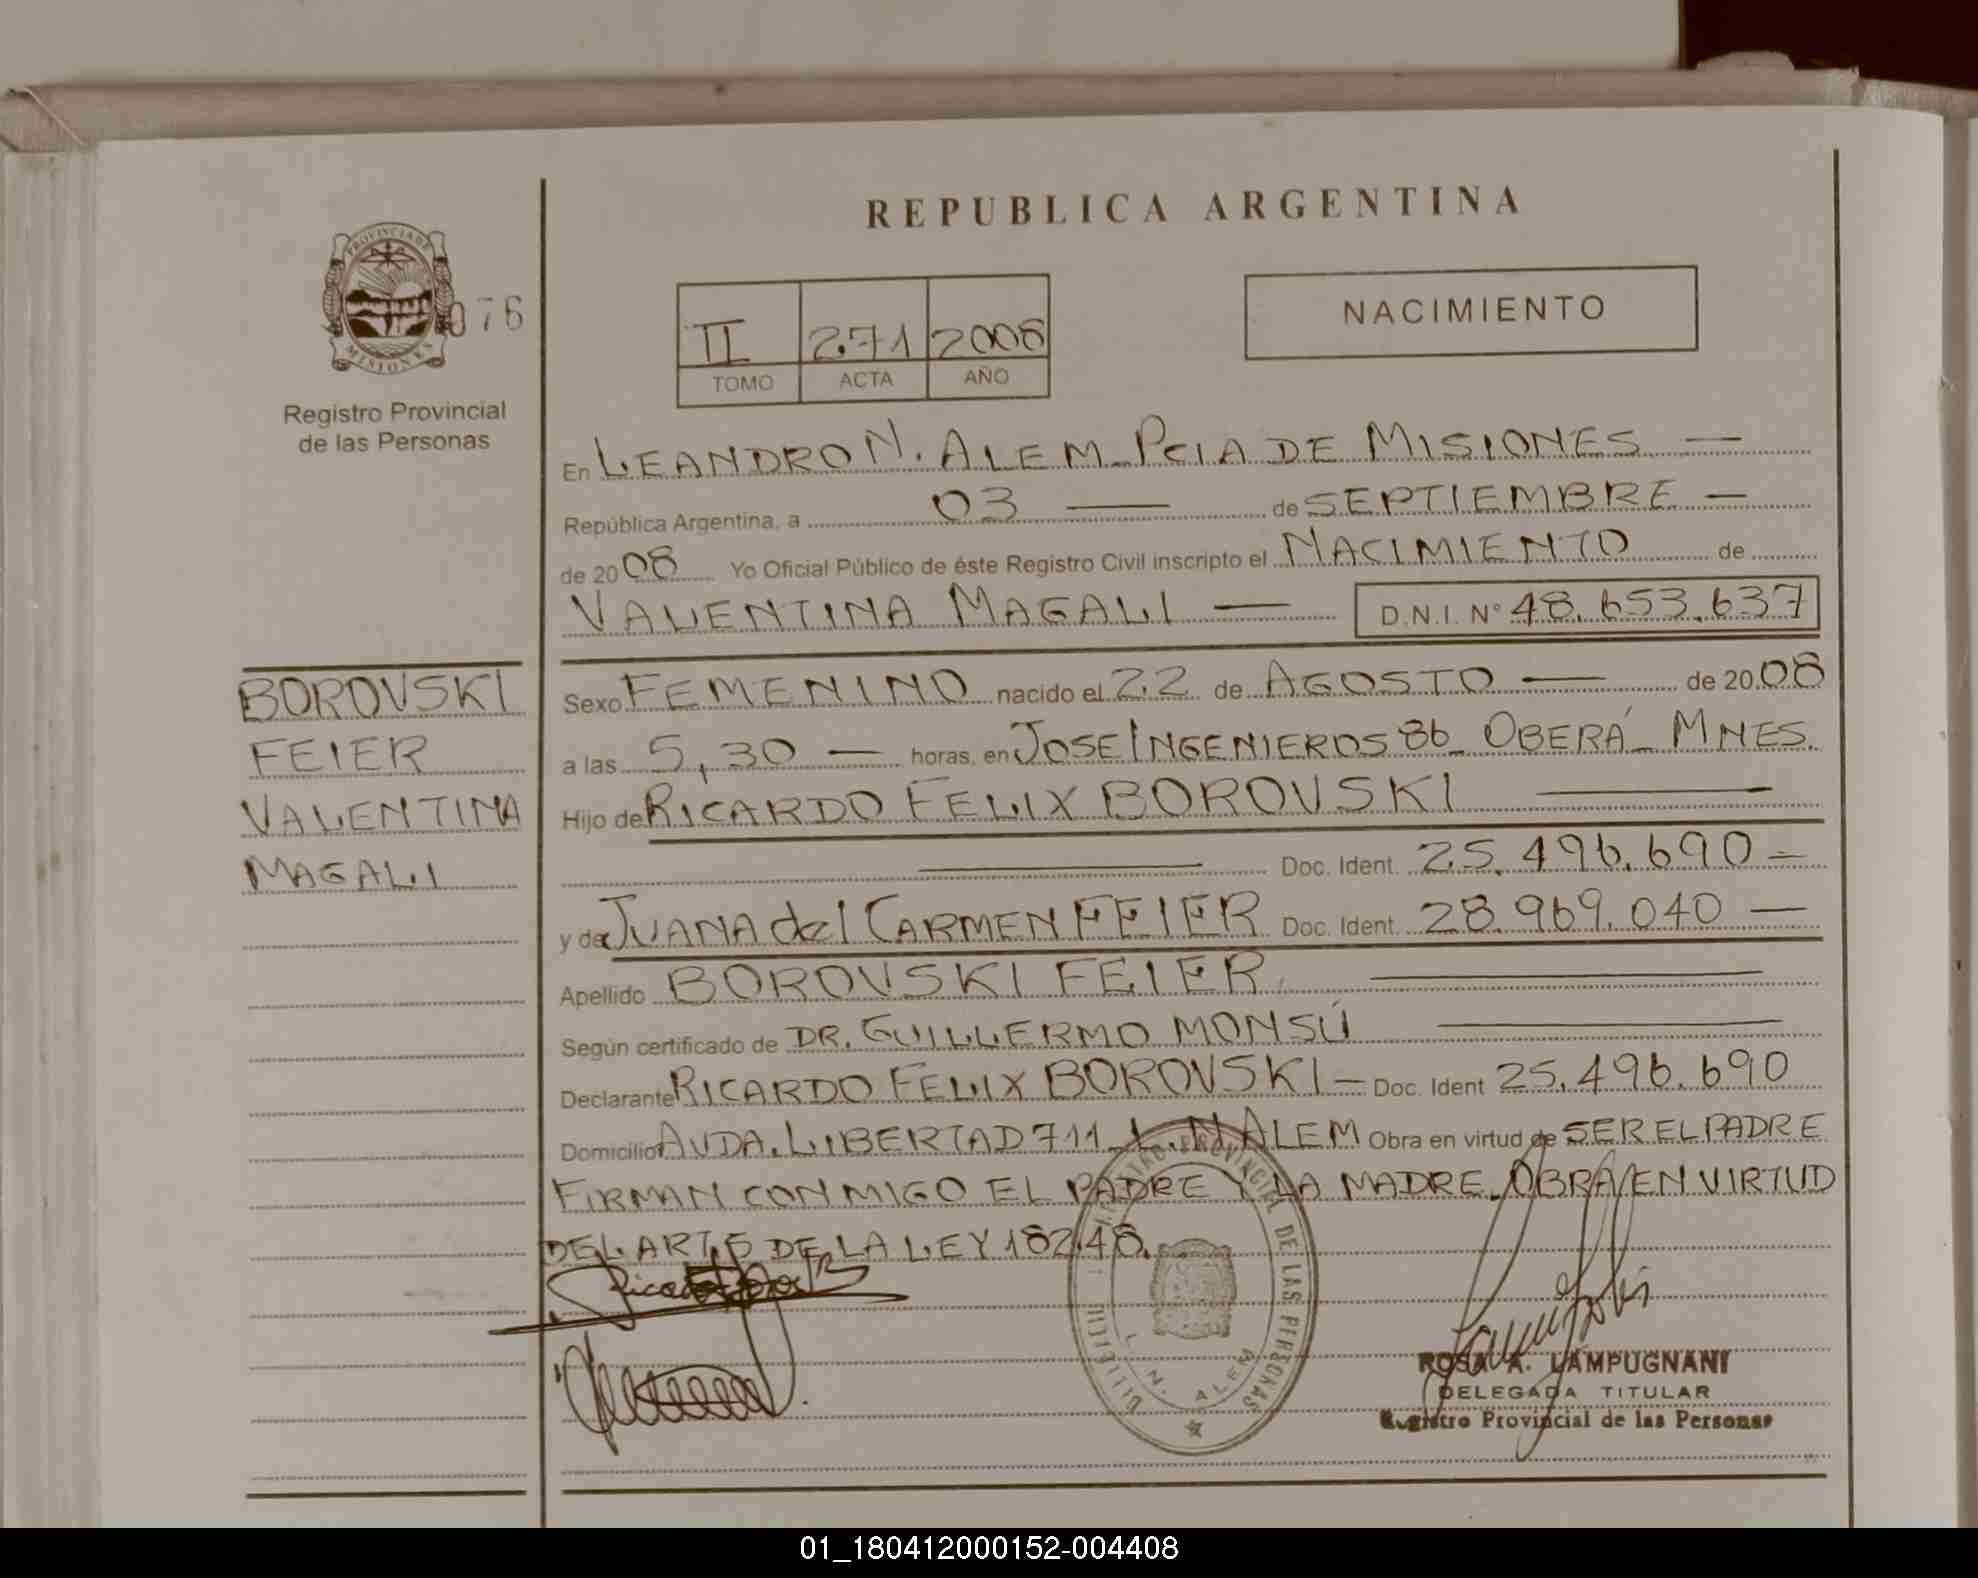 REPUBLICA ARGENTINA
PROVINCIA DE
MISIONES
076
Registro Provincial
de las Personas
II 271 2008
TOMO ACTA AÑO
NACIMIENTO
En LEANDRO N. ALEM - PCIA DE MISIONES —
República Argentina, a 03 — de SEPTIEMBRE —
de 2008 Yo Oficial Público de éste Registro Civil inscripto el NACIMIENTO de
VALENTINA MAGALI — D.N.I. N° 48.653.637
BOROVSKI
FEIER
VALENTINA
MAGALI
Sexo FEMENINO nacido el 22 de AGOSTO — de 2008
a las 5,30 — horas, en JOSE INGENIEROS 86 - OBERÁ - MNES.
Hijo de RICARDO FELIX BOROVSKI —
— Doc. Ident. 25.496.690 —
y de JUANA del CARMEN FEIER Doc. Ident. 28.969.040 —
Apellido BOROVSKI FEIER —
Según certificado de DR. GUILLERMO MONSÚ —
Declarante RICARDO FELIX BOROVSKI — Doc. Ident 25.496.690
Domicilio AVDA. LIBERTAD 711 - L. N ALEM Obra en virtud de SER EL PADRE
FIRMAN CONMIGO EL PADRE Y LA MADRE. OBRA EN VIRTUD
DEL ART. 5 DE LA LEY 182.48.
REGISTRO PROVINCIAL DE LAS PERSONAS
L. N. ALEM
ROSA A. LAMPUGNANI
DELEGADA TITULAR
Registro Provincial de las Personas
01_180412000152-004408